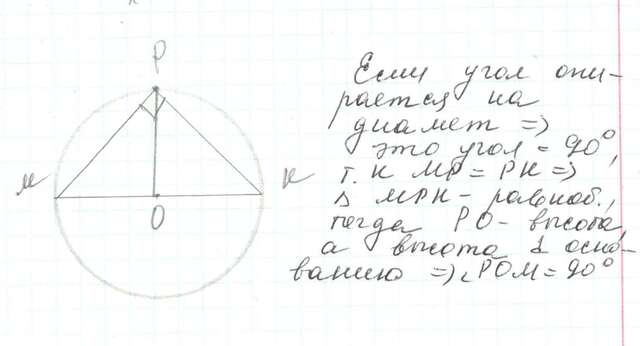 P
M
K
O
Если угол опи-
рается на
диамет =>
это угол = 90°,
т.к MP = PK =>
△ MPK - равноб.,
тогда PO - высота,
а высота ⊥ осно-
ванию => ∠POM = 90°